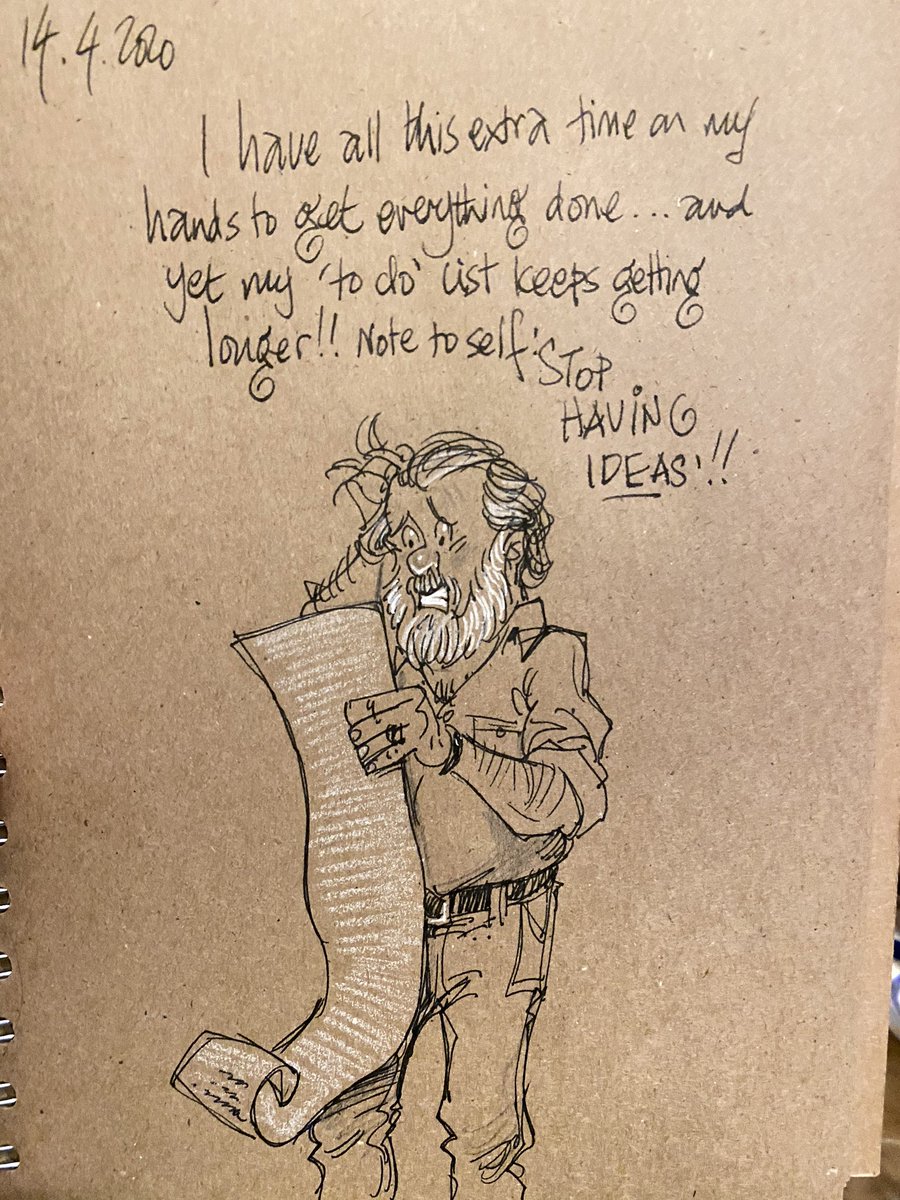 14.4.2020
I have all this extra time on my
hands to get everything done... and
yet my 'to do' list keeps getting
longer!! Note to self: STOP
HAVING
IDEAS!!